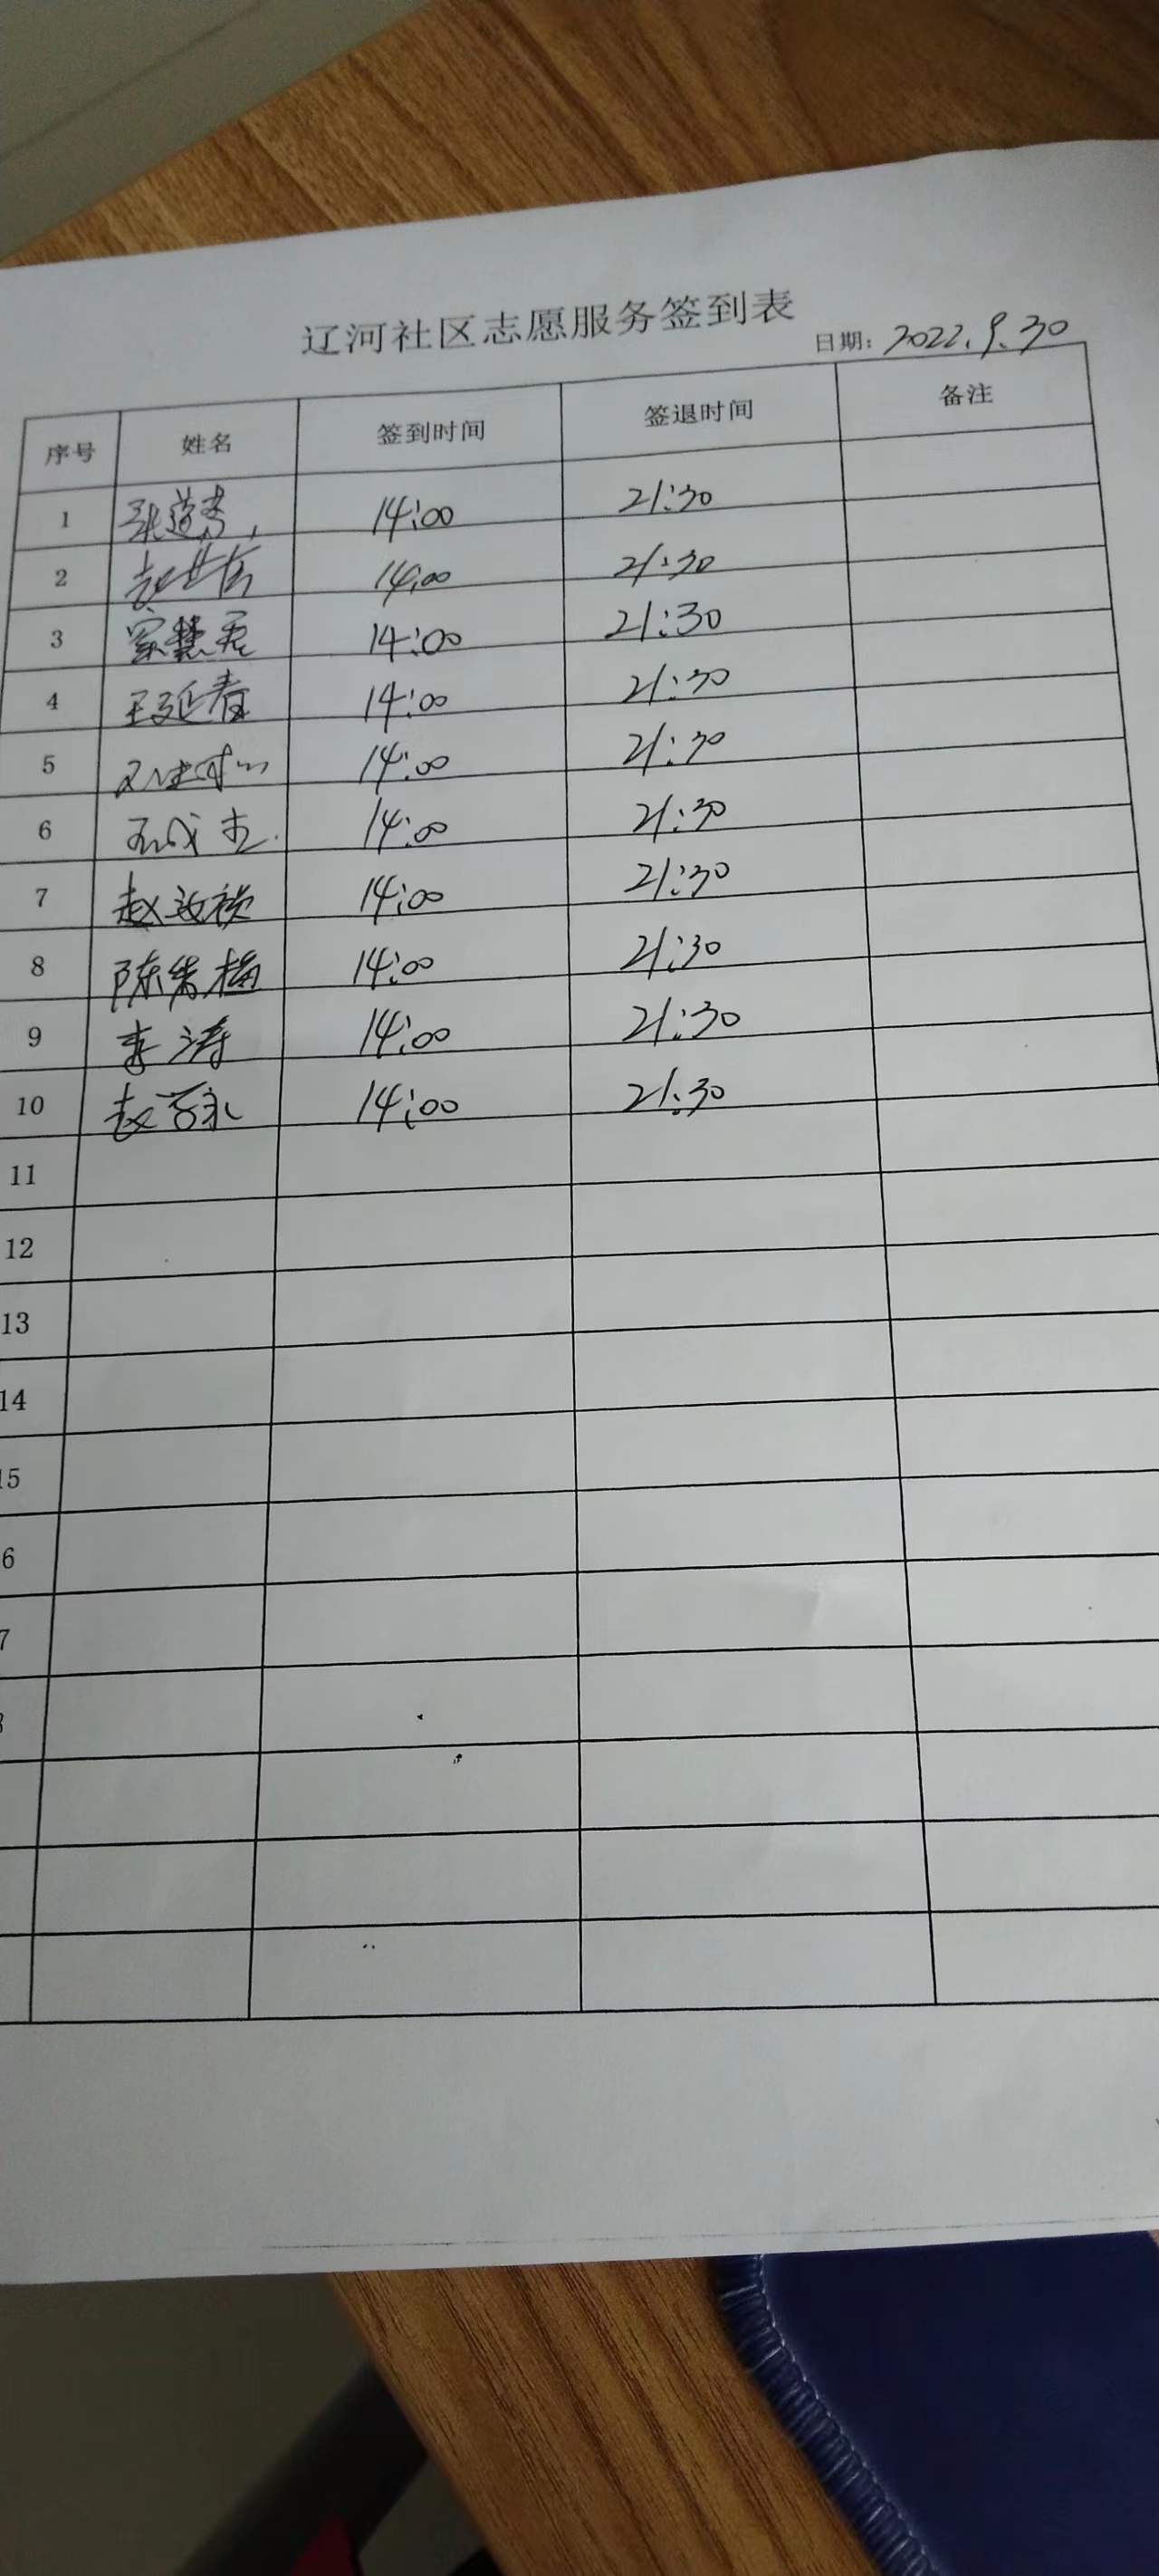 辽河社区志愿服务签到表
日期: 2022.9.30
序号 姓名 签到时间 签退时间 备注
1 14:00 21:30
2 14:00 21:30
3 窦慧君 14:00 21:30
4 王延春 14:00 21:30
5 14:00 21:30
6 14:00 21:30
7 14:00 21:30
8 14:00 21:30
9 李涛 14:00 21:30
10 14:00 21:30
11
12
13
14
15
6
7